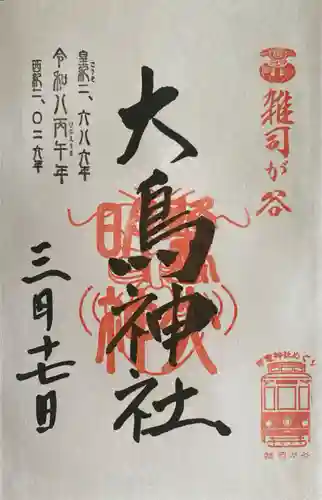 雑司が谷
大鳥神社
皇紀二、六八六年
こうき
令和八丙午年
ひのえうま
西紀二、〇二六年
三月十七日
雑司が谷